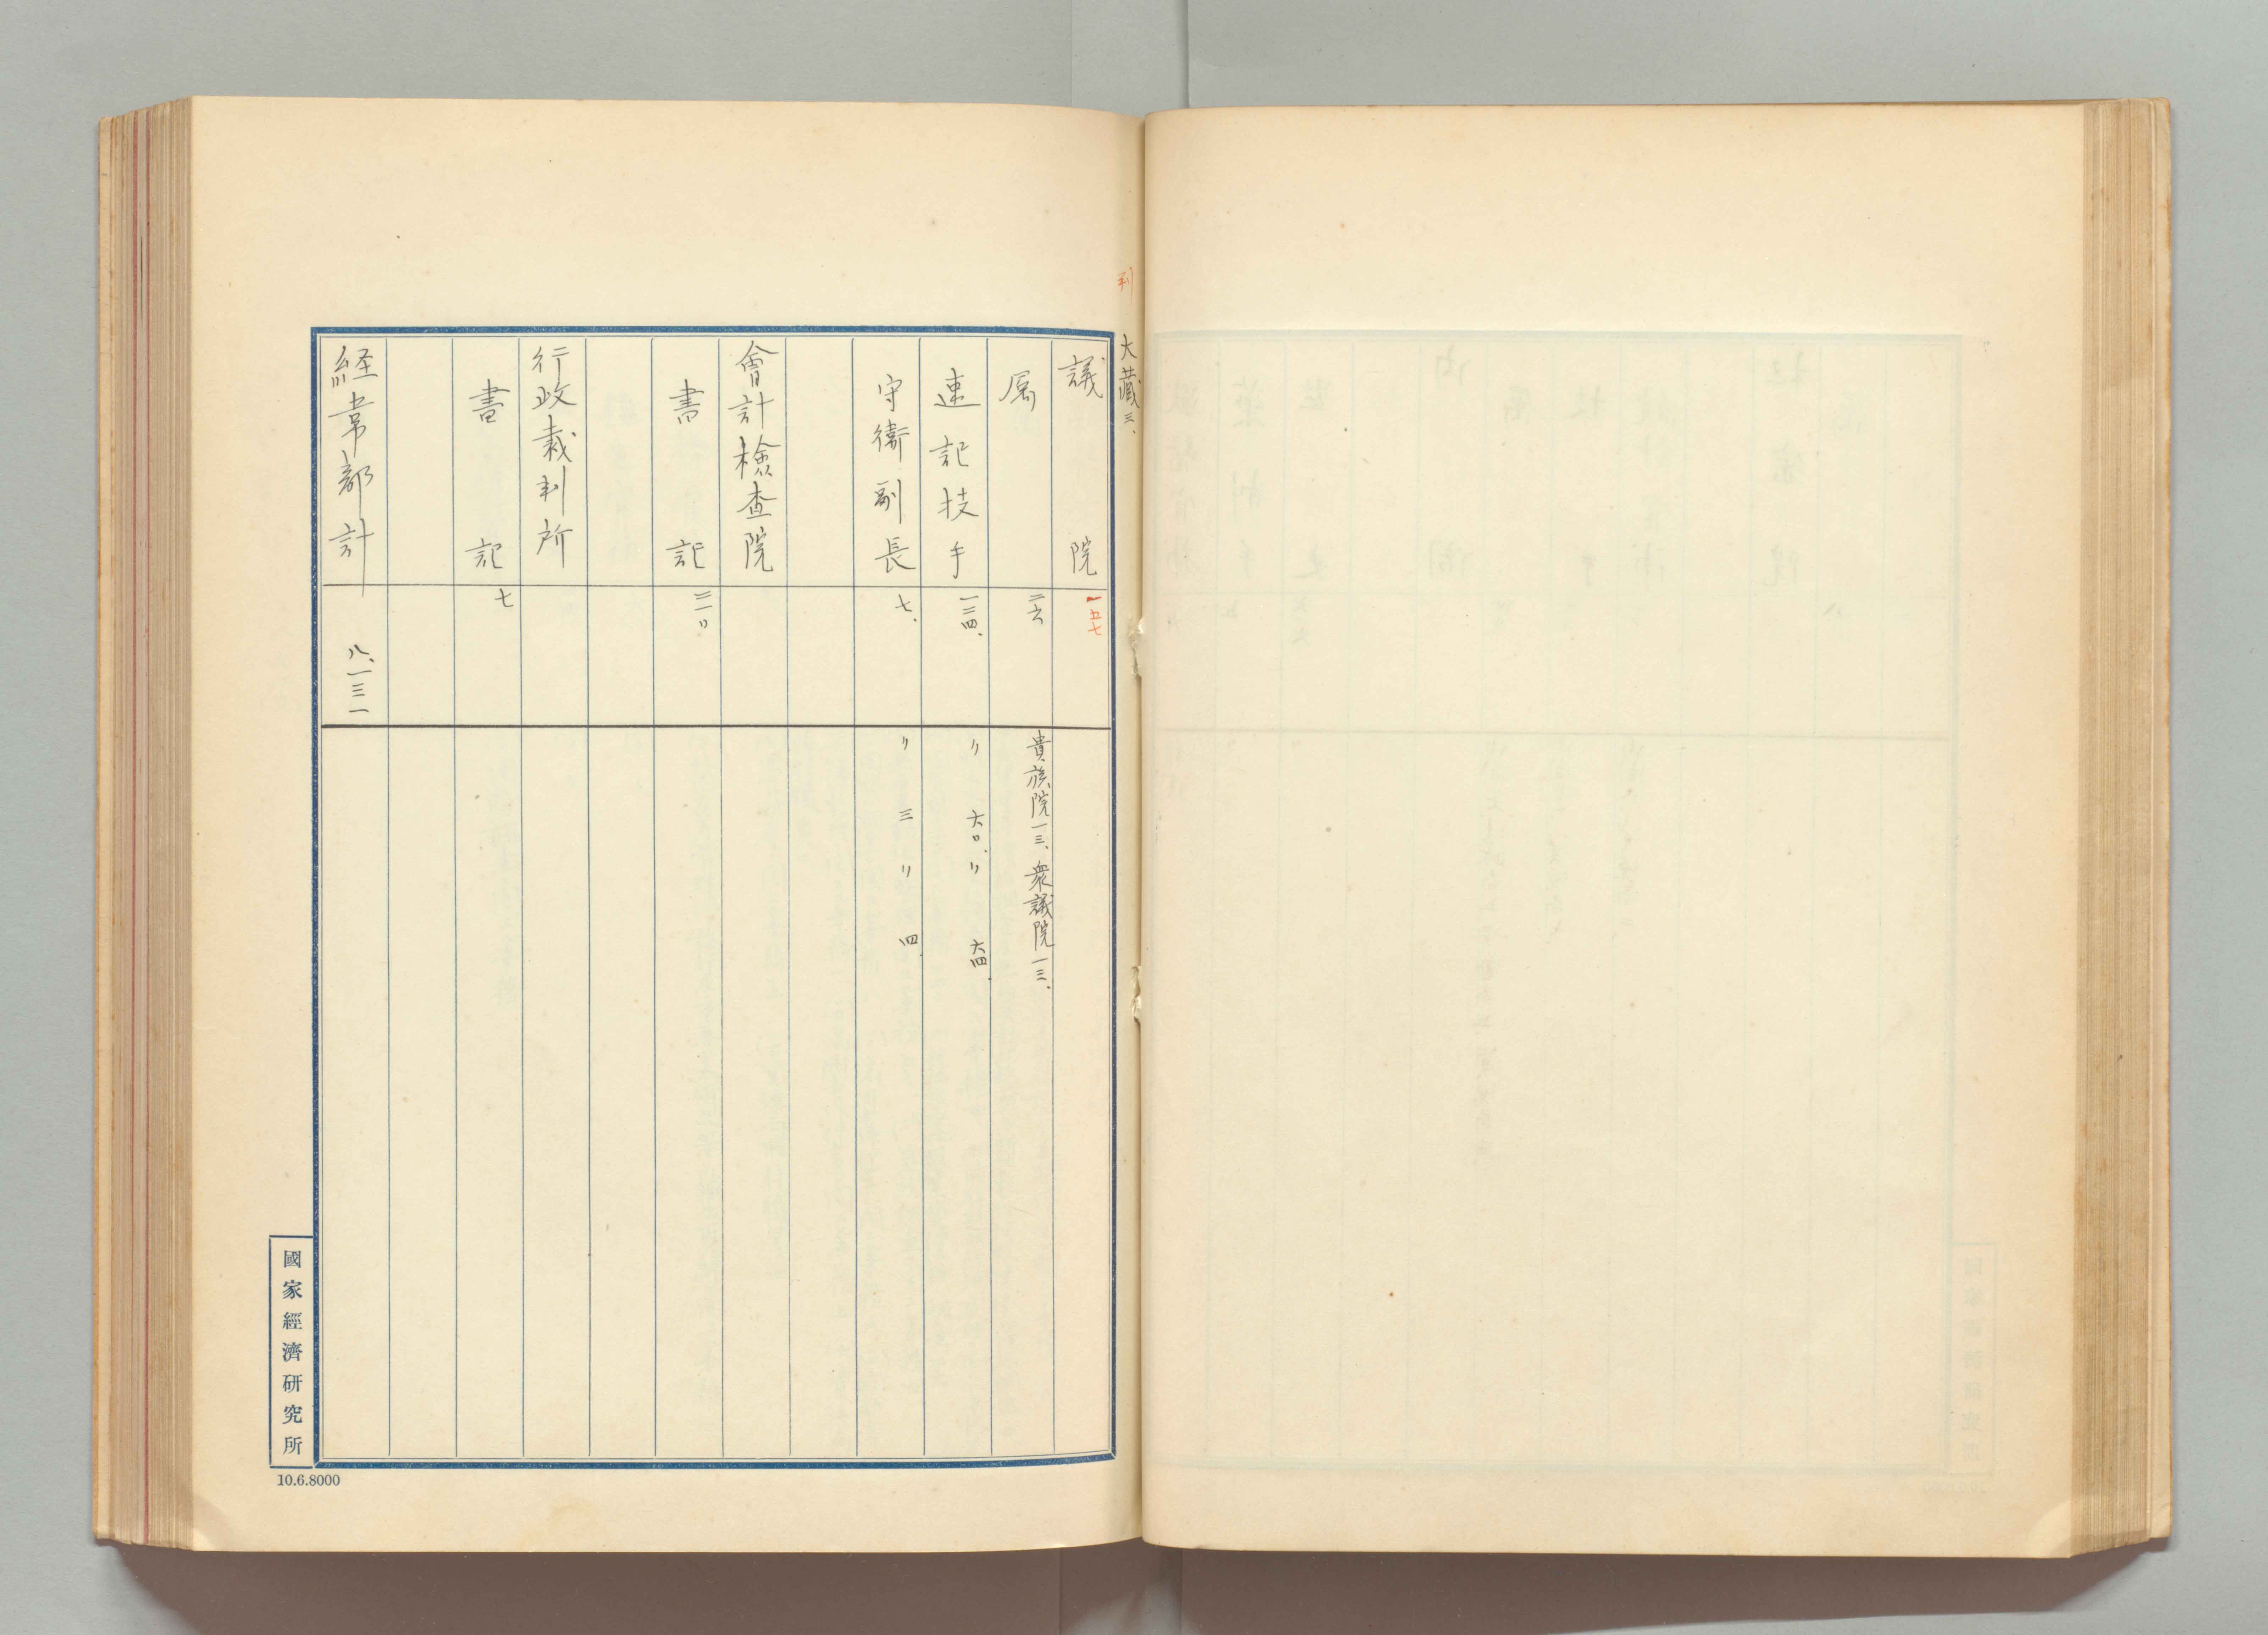 大藏三、
議院 一五七
属 二六 貴族院一三、衆議院一三、
速記技手 一二四、 〃 六〇、〃 六四、
守衛副長 七、 〃 三 〃 四
會計檢査院
書記
行政裁判所
書記 七
経常部計 八、一三一
國家經濟研究所
10.6.8000